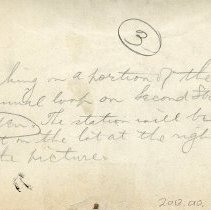 3
king on a portion of the
minal loop on Second Str
The station will be
t on the lot at the right
he picture.
2013.00.